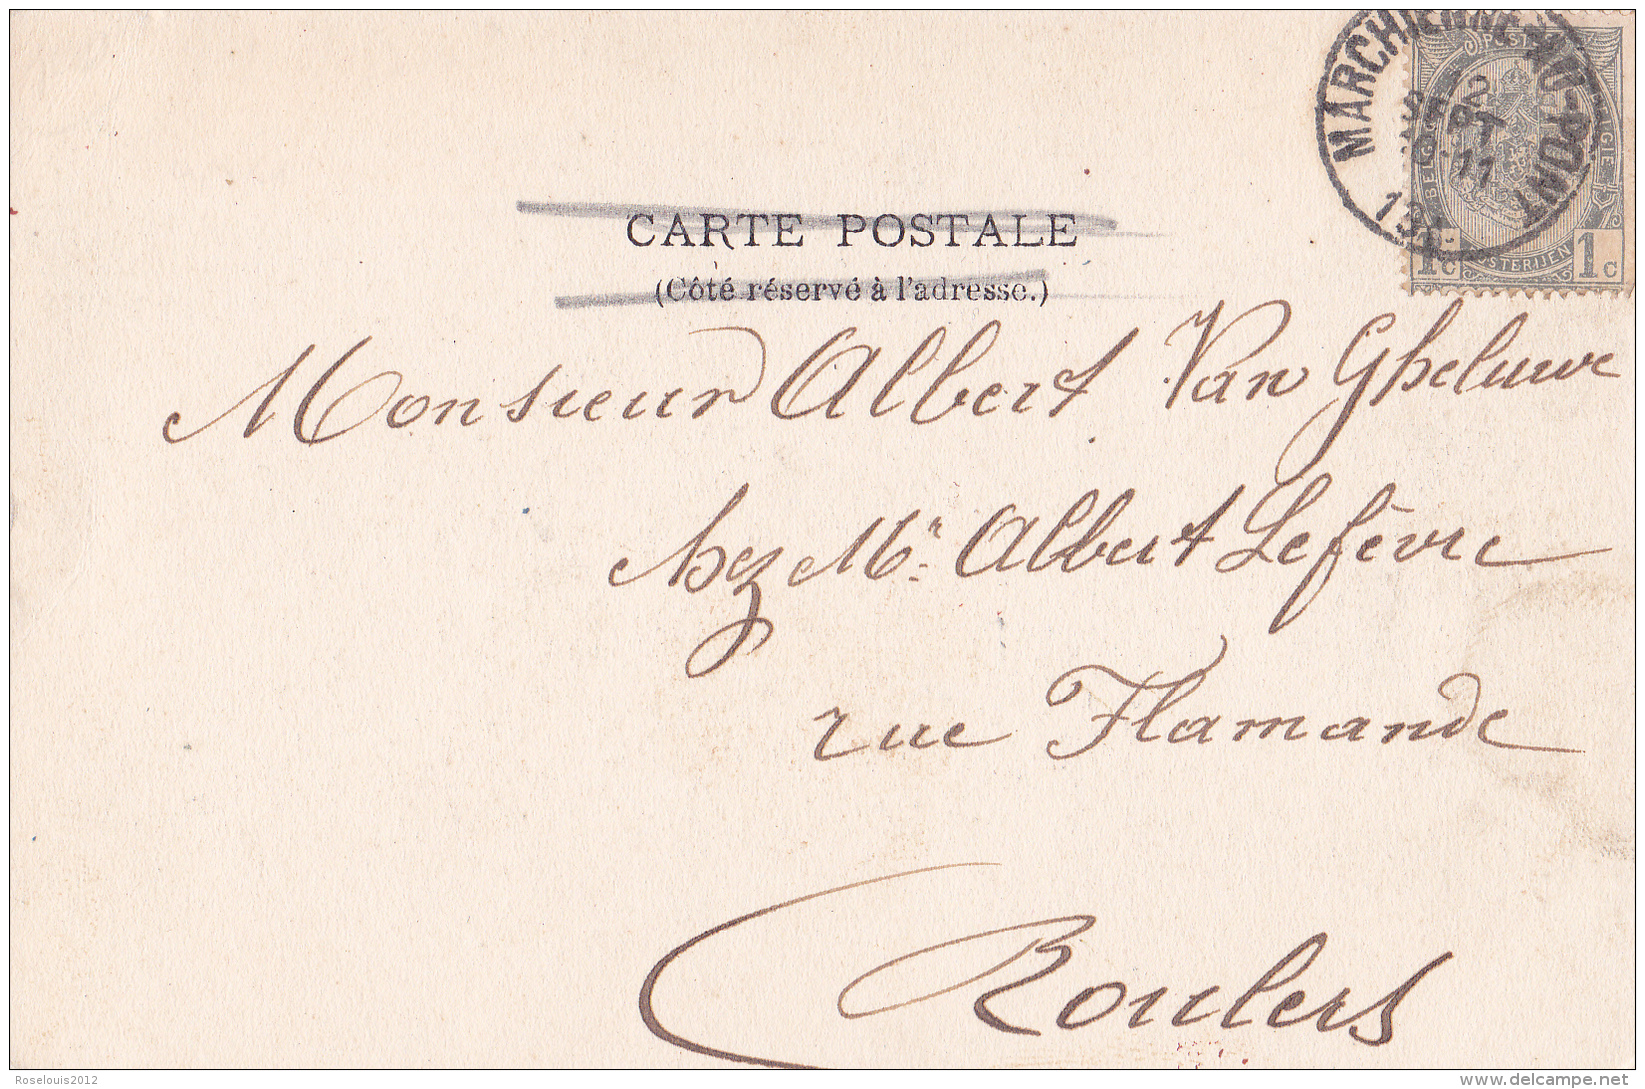 MARCHIENNE-AU-PONT
12
SEPT
11
POST
BELG
GIË
1c
STERIJEN
1c
CARTE POSTALE
(Côté réservé à l'adresse.)
Monsieur Albert Van Gheluwe
chez Mr. Albert Lefèvre
rue Flamande
Roulers
Roselouis2012
delcampe.net